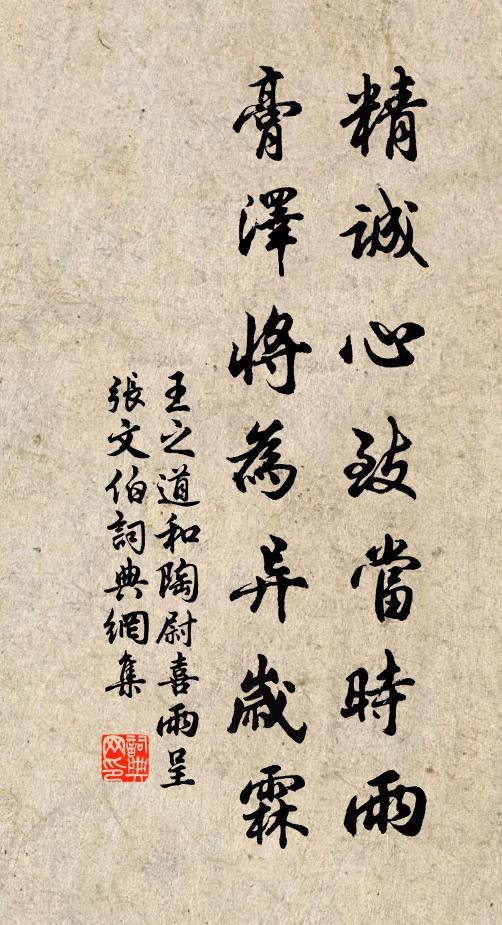 精誠心致當時雨
膏澤將為异歲霖
王之道和陶尉喜雨呈
張文伯詞典網集
詞典
网印